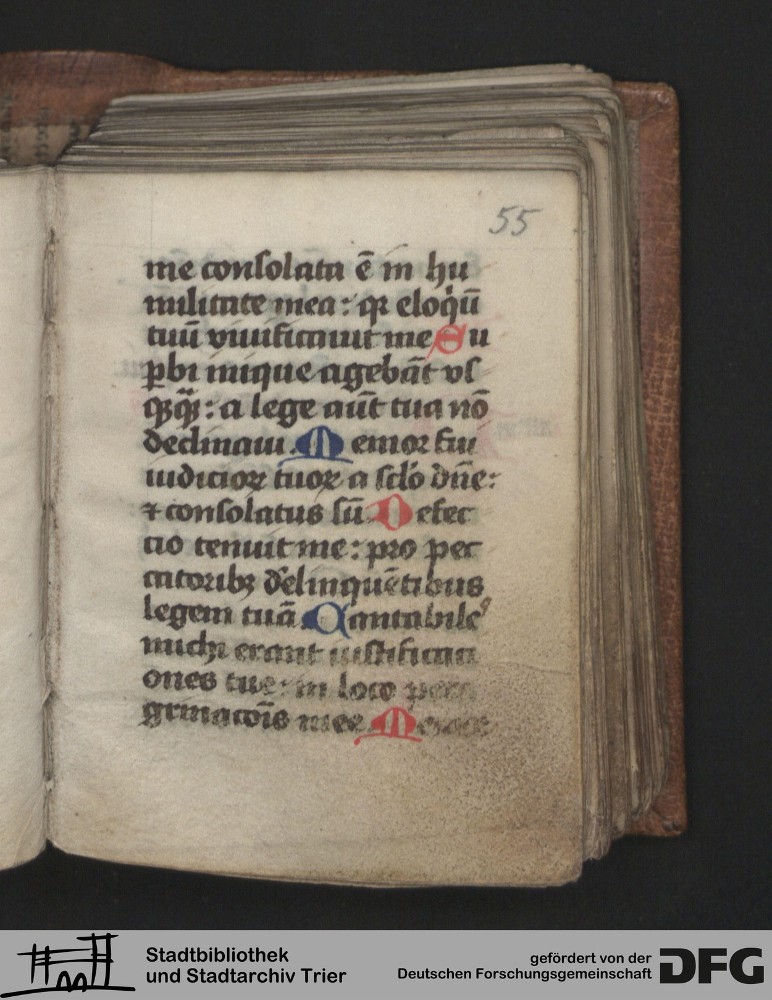 55
me consolata ē in hu
militate mea: qꝛ eloqͥū
tuū viuificauit me Su
ꝑbi inique agebāt vſ
qꝫqͣꝫ: a lege aūt tua nō
declinaui. Memor fui
iudicioꝝ tuoꝝ a sclo dn̄e:
⁊ consolatus sū Defec
tio tenuit me: pro pec
catoribꝫ delinquētibus
legem tuā. Cantabile
michi erant iustificati
ones tue: in loco pere
grinacōis mee Memor
Stadtbibliothek
und Stadtarchiv Trier
gefördert von der
Deutschen Forschungsgemeinschaft
DFG